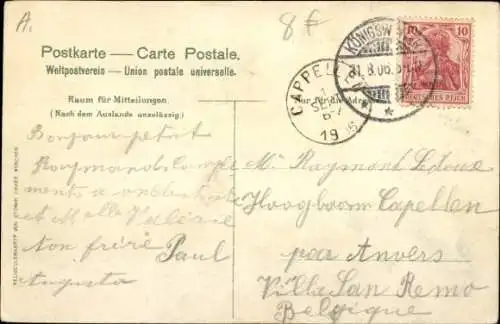 A.
8 f
Postkarte — Carte Postale.
Weltpostverein — Union postale universelle.
Raum für Mitteilungen.
(Nach dem Auslande unzulässig.)
Nur für die Adresse
KÖNIGSW
31.8.06.
CAPPEL
1
SEPT
1906
10 10
DEUTSCHES REICH
Bonjour petit
Raymond
ments a
et M elle Valérie
ton frère Paul
Augusta
Mr Raymont Ledoux
Hoogboom Capellen
par Anvers
Villa San Remo
Belgique